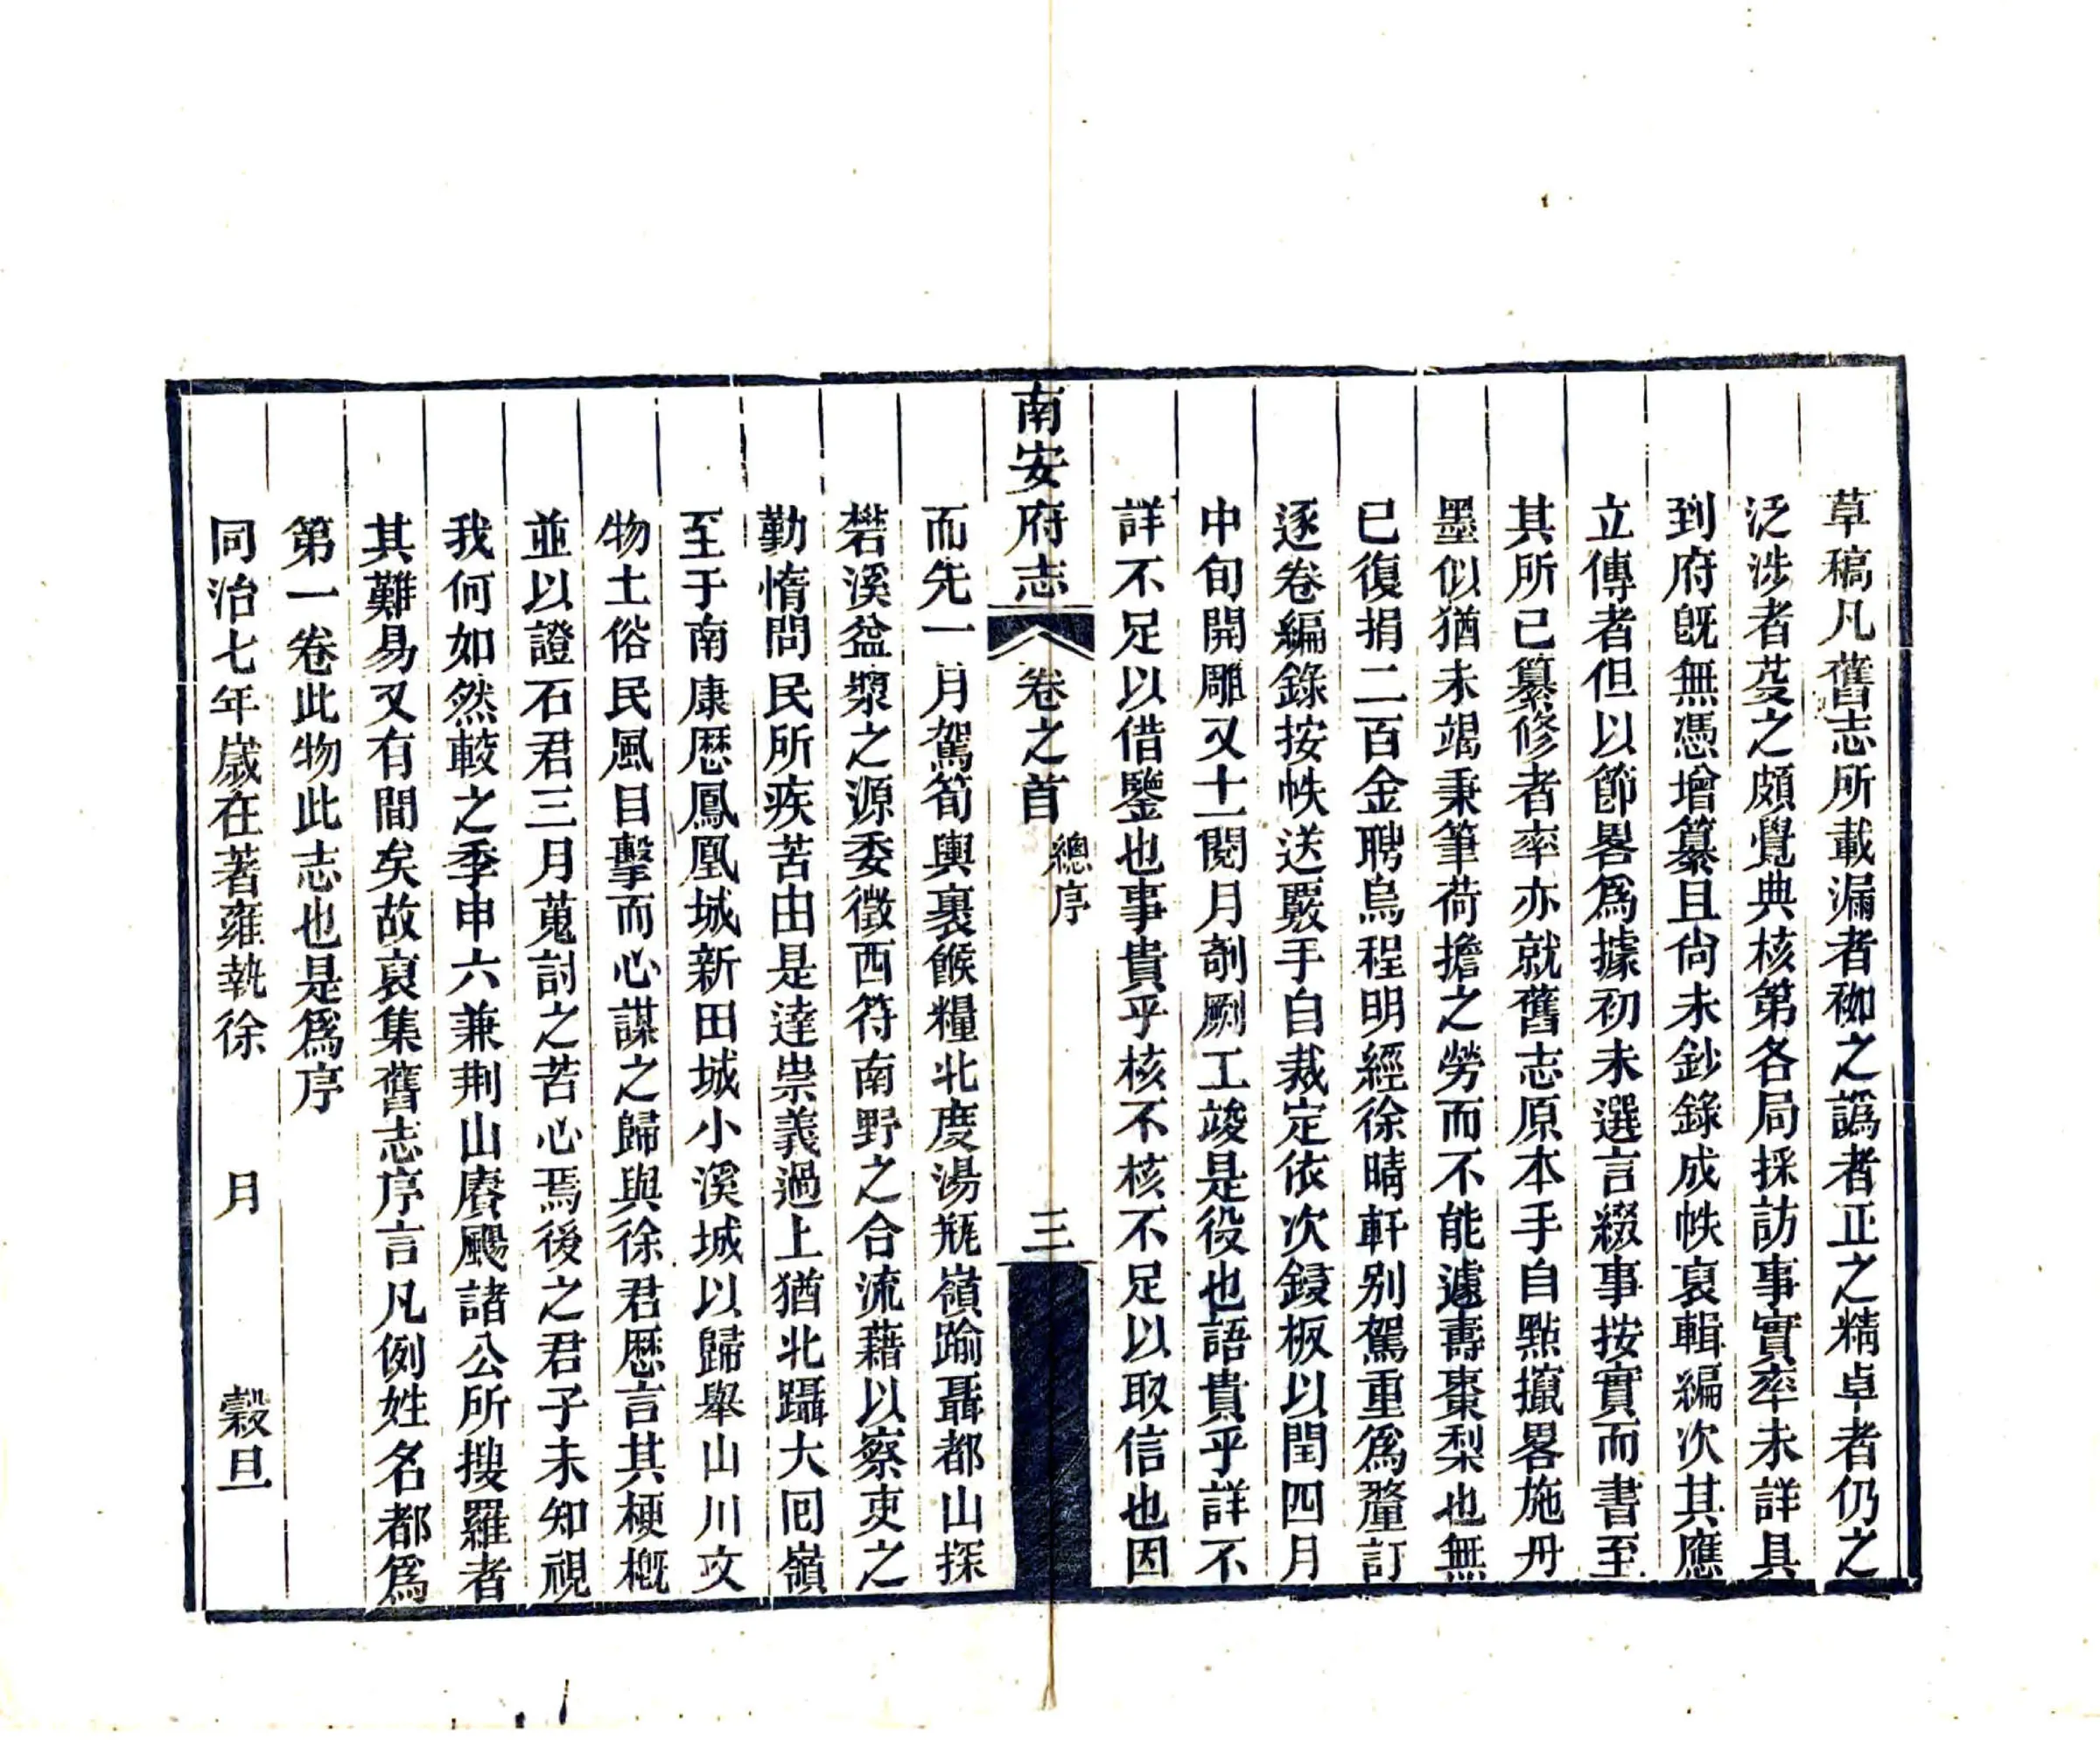 草稿凡舊志所載漏者補之譌者正之精卓者仍之
泛涉者芟之頗覺典核第各局採訪事實率未詳具
到府既無憑增纂且尙未鈔錄成帙裒輯編次其應
立傳者但以節畧爲據初未選言綴事按實而書至
其所已纂修者率亦就舊志原本手自點攛畧施丹
墨似猶未竭秉筆荷擔之勞而不能遽壽棗梨也無
已復捐二百金聘烏程明經徐晴軒别駕重爲釐訂
逐卷編錄按帙送覈手自裁定依次鋟板以閏四月
中旬開雕又十一閱月剞劂工竣是役也語貴乎詳不
詳不足以借鑒也事貴乎核不核不足以取信也因
南安府志 卷之首 總序 三
而先一月駕筍輿裹餱糧北度湯瓶嶺踰聶都山探
礬溪盆漿之源委徵西符南野之合流藉以察吏之
勤惰問民所疾苦由是達崇義過上猶北躡大囘嶺
至于南康歷鳳凰城新田城小溪城以歸舉山川文
物土俗民風目擊而心謀之歸與徐君歷言其梗概
並以證石君三月蒐討之苦心焉後之君子未知視
我何如然較之季申六兼荆山賡颺諸公所搜羅者
其難易又有間矣故裒集舊志序言凡例姓名都爲
第一卷此物此志也是爲序
同治七年歲在著雍執徐 月 穀旦